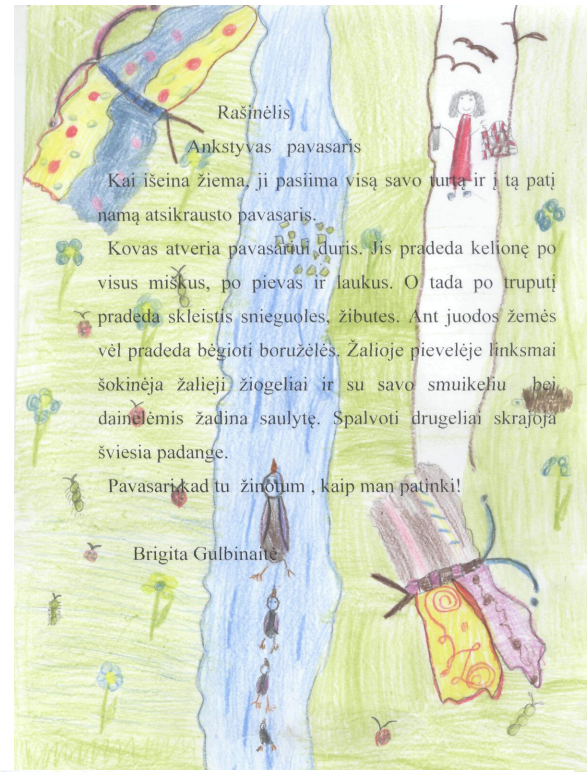 Rašinėlis
Ankstyvas pavasaris
Kai išeina žiema, ji pasiima visą savo turtą ir į tą patį
namą atsikrausto pavasaris.
Kovas atveria pavasariui duris. Jis pradeda kelionę po
visus miškus, po pievas ir laukus. O tada po truputį
pradeda skleistis snieguolės, žibutes. Ant juodos žemės
vėl pradeda bėgioti boružėlės. Žalioje pievelėje linksmai
šokinėja žalieji žiogeliai ir su savo smuikeliu bei
dainelėmis žadina saulytę. Spalvoti drugeliai skrajoja
šviesia padange.
Pavasari,kad tu žinotum , kaip man patinki!
Brigita Gulbinaitė